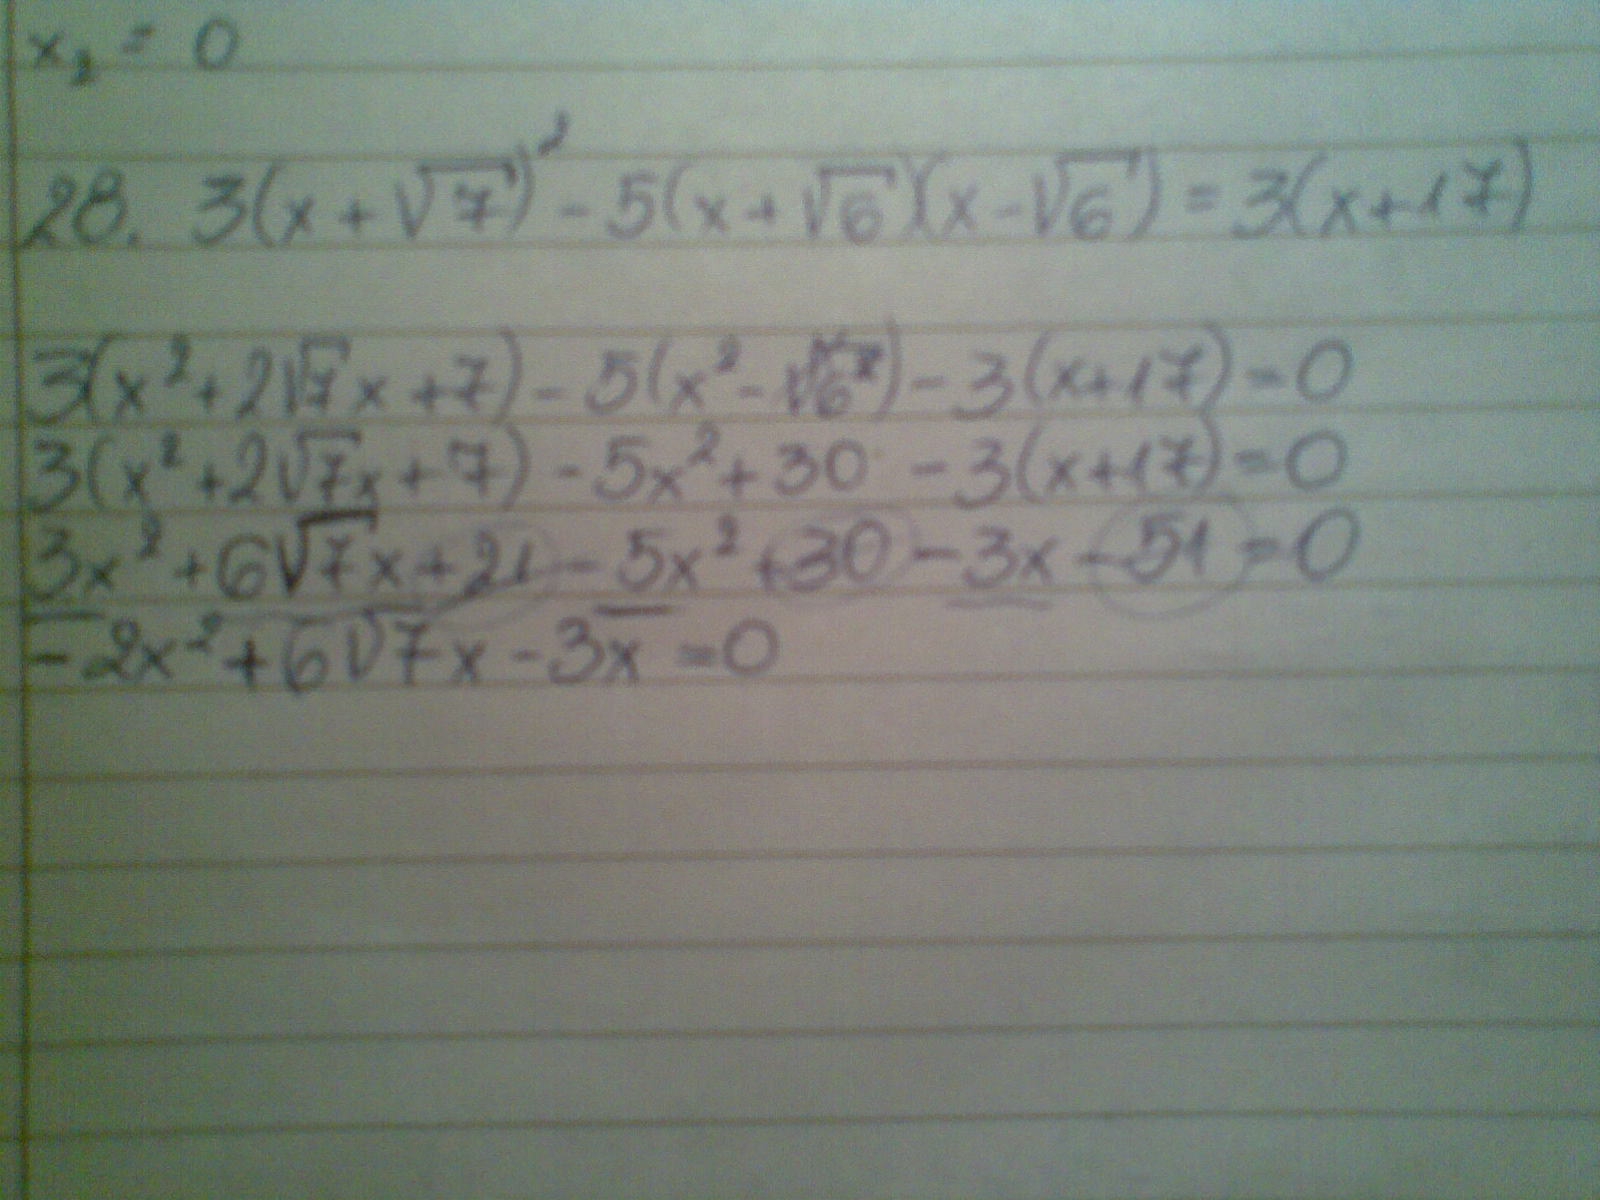 x₂ = 0
28. 3(x+√7)² - 5(x+√6)(x-√6) = 3(x+17)
3(x²+2√7x+7) - 5(x²-√6²) - 3(x+17)=0
3(x²+2√7x+7) - 5x²+30 - 3(x+17)=0
3x²+6√7x+21-5x²+30-3x-51=0
-2x²+6√7x-3x=0